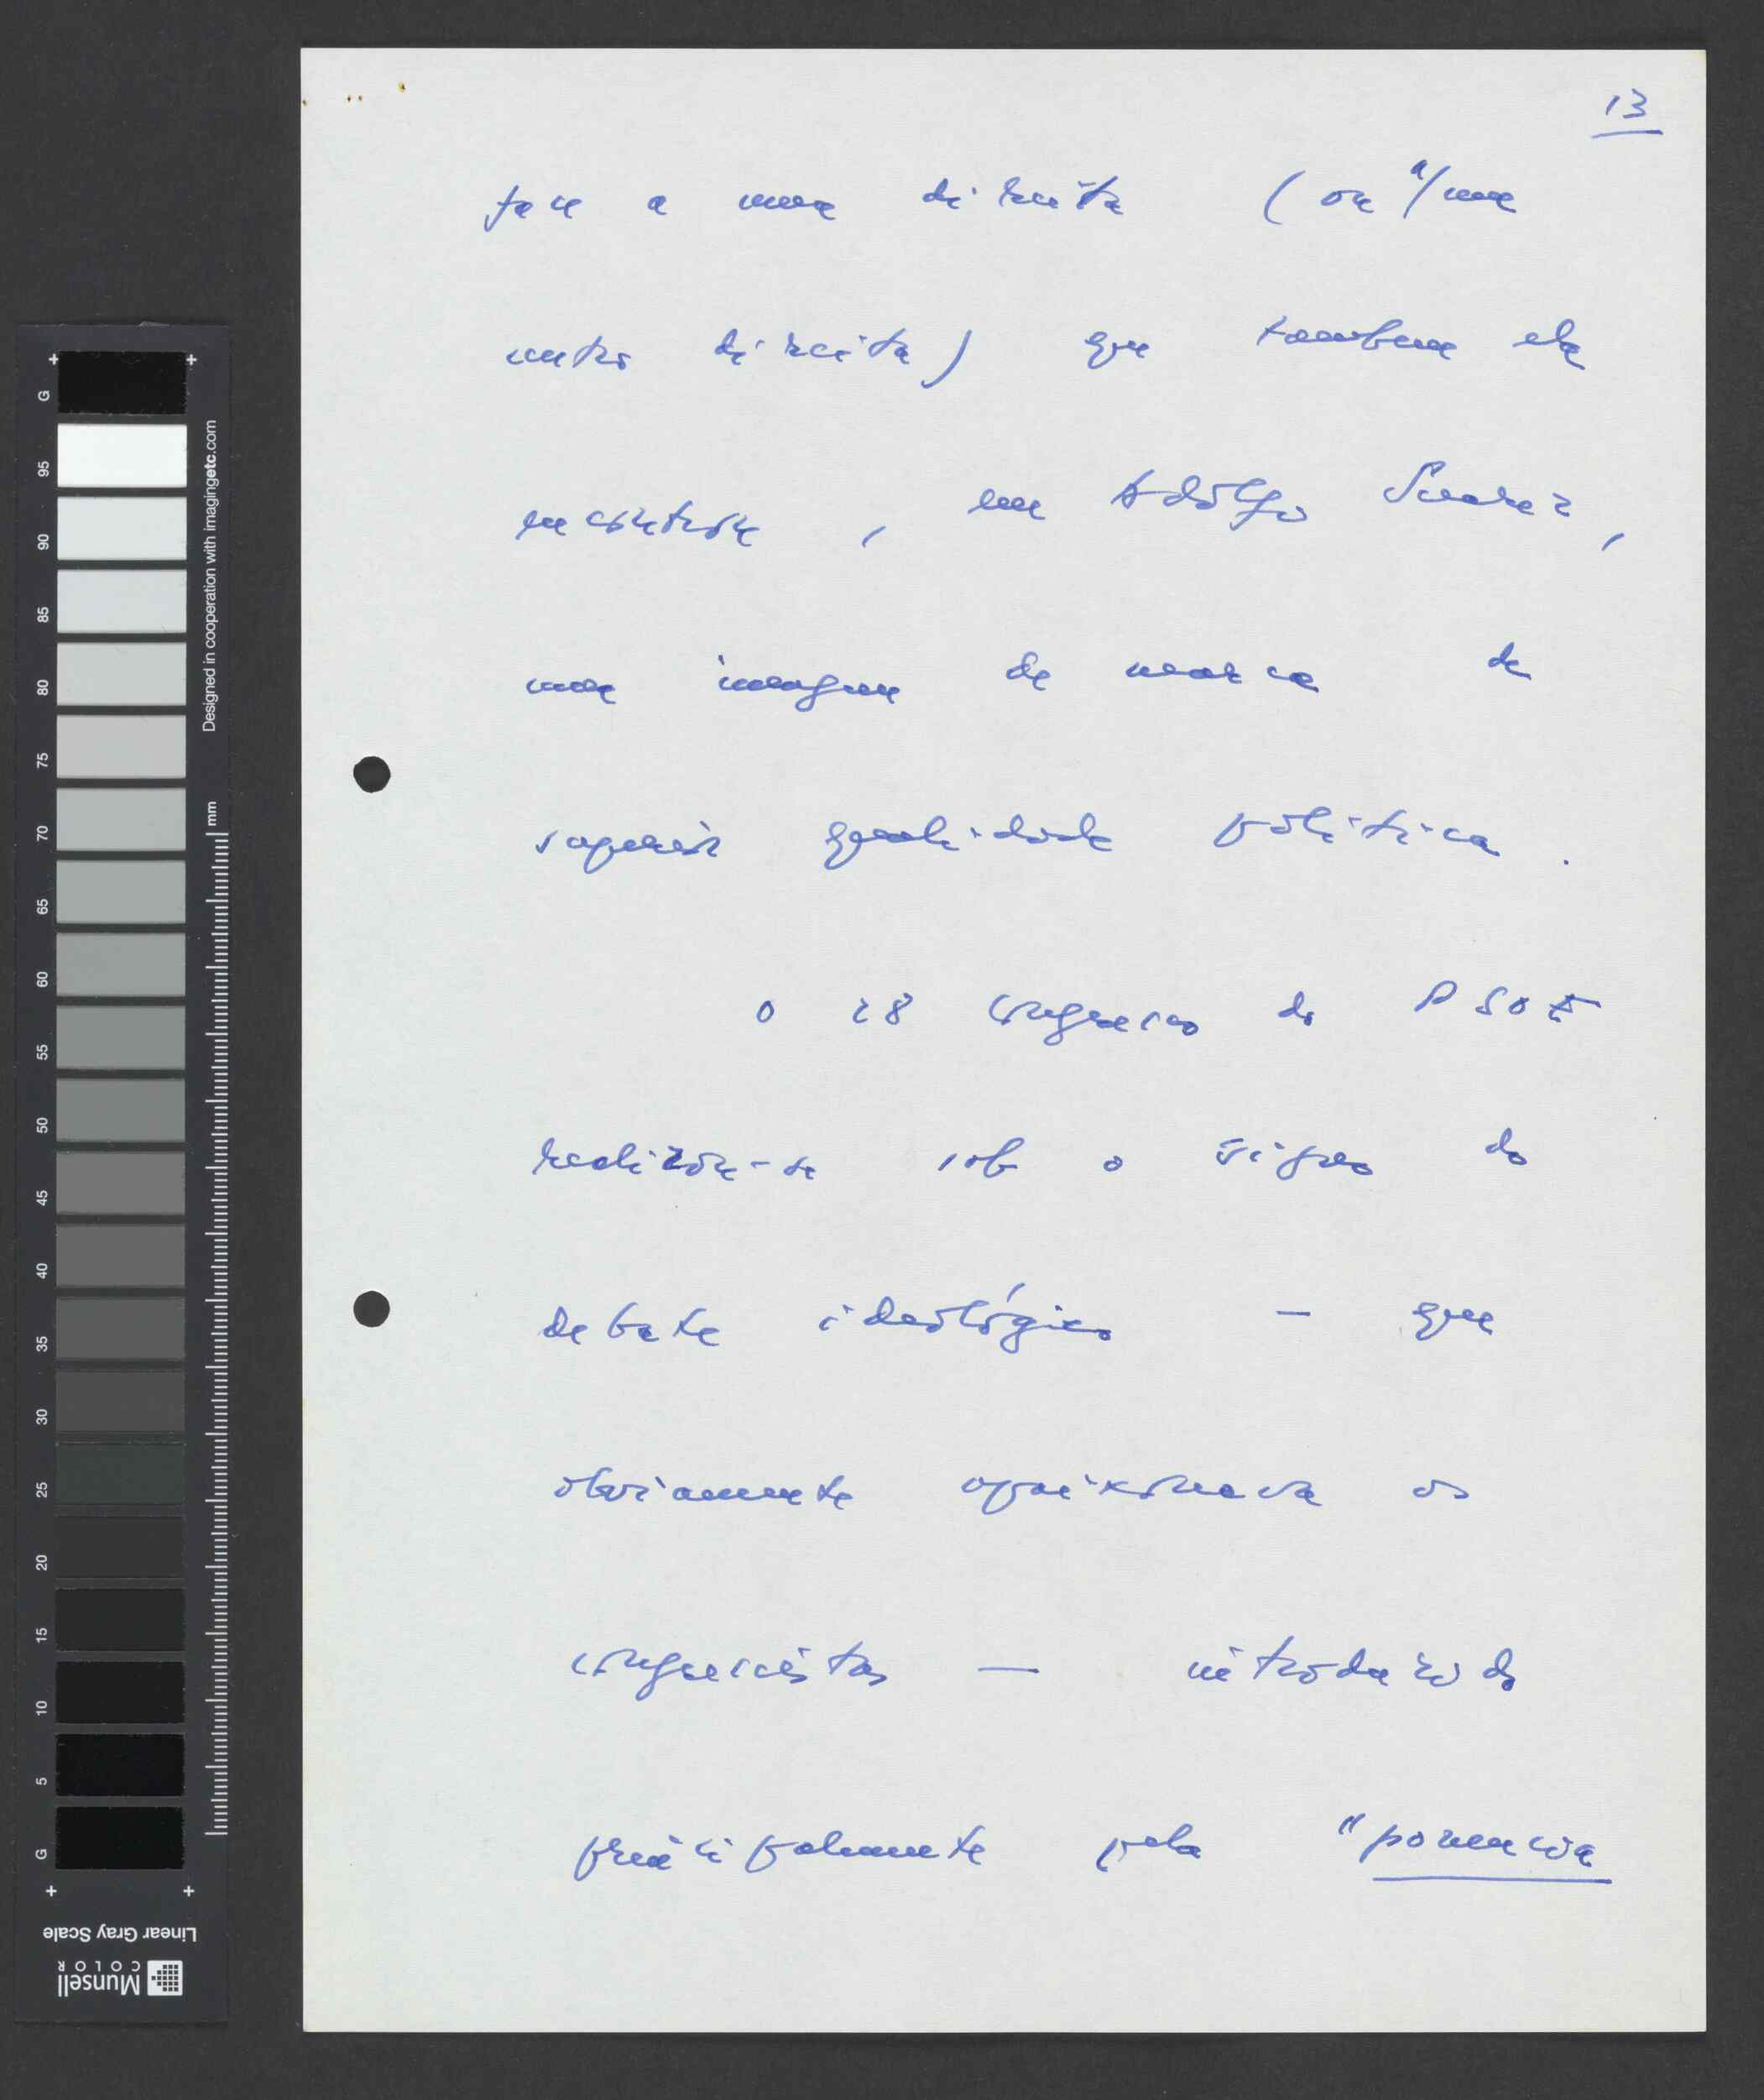 13
face a uma direita (ou a/uma
centro direita) que tambem ela
encontrou, em Adolfo Suarez,
uma imagem de marca de
superior qualidade politica.
O 28 congresso do PSOE
realizou-se sob o signo do
debate ideológico — que
obviamente apaixonava os
congressistas — introduzido
principalmente pela "ponencia
G
95
90
85
80
75
70
65
60
55
50
45
40
35
30
25
20
15
10
5
G
Designed in cooperation with imagingetc.com
mm
Linear Gray Scale
Munsell
COLOR